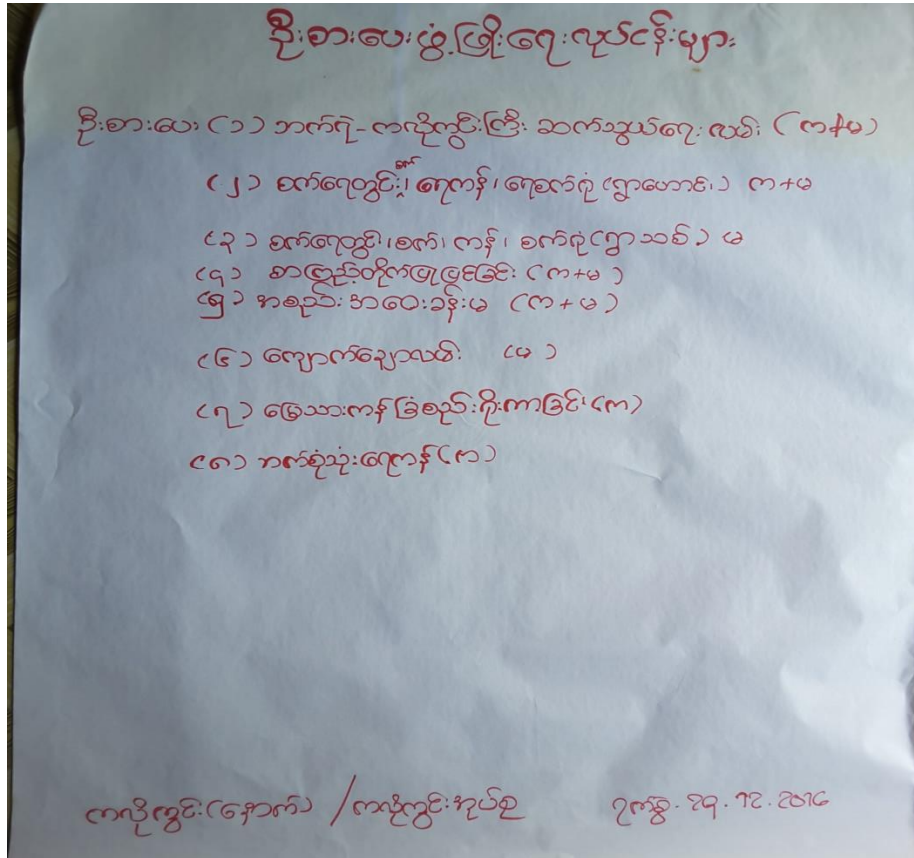 ဦးစားပေးဖွံ့ဖြိုးရေးလုပ်ငန်းများ
ဦးစားပေး (၁) ဘက်ရဲ-ကလိုကွင်းကြီး ဆက်သွယ်ရေးလမ်း (က+မ)
(၂) စက်ရေတွင်း၊ စက် ရေကန်၊ ရေစက်ရုံ (ရွာဟောင်း) က+မ
(၃) စက်ရေတွင်း၊ စက်၊ ကန်၊ စက်ရုံ (ရွာသစ်) မ
(၄) စာကြည့်တိုက်ပြုပြင်ခြင်း (က+မ)
(၅) အစည်းအဝေးခန်းမ (က+မ)
(၆) ကျောက်ချောလမ်း (မ)
(၇) မြေသားကန်ခြံစည်းရိုးကာခြင်း (က)
(၈) ဘက်စုံသုံးရေကန် (က)
ကလိုကွင်း (နောက်) / ကလိုကွင်းအုပ်စု ရက်စွဲ - 29.12.2016